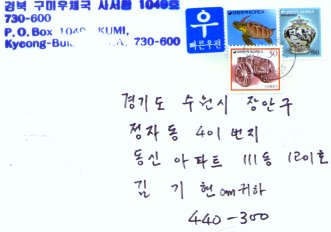 경북 구미우체국 사서함 1049호
730-600
P.O. Box 1049 KUMI,
Kyeong-Buk 730-600
우
빠른우편
대한민국 KOREA
대한민국 KOREA
50
경기도 수원시 장안구
정자동 401번지
동신아파트 111동 1201호
김기현 귀하
440-300